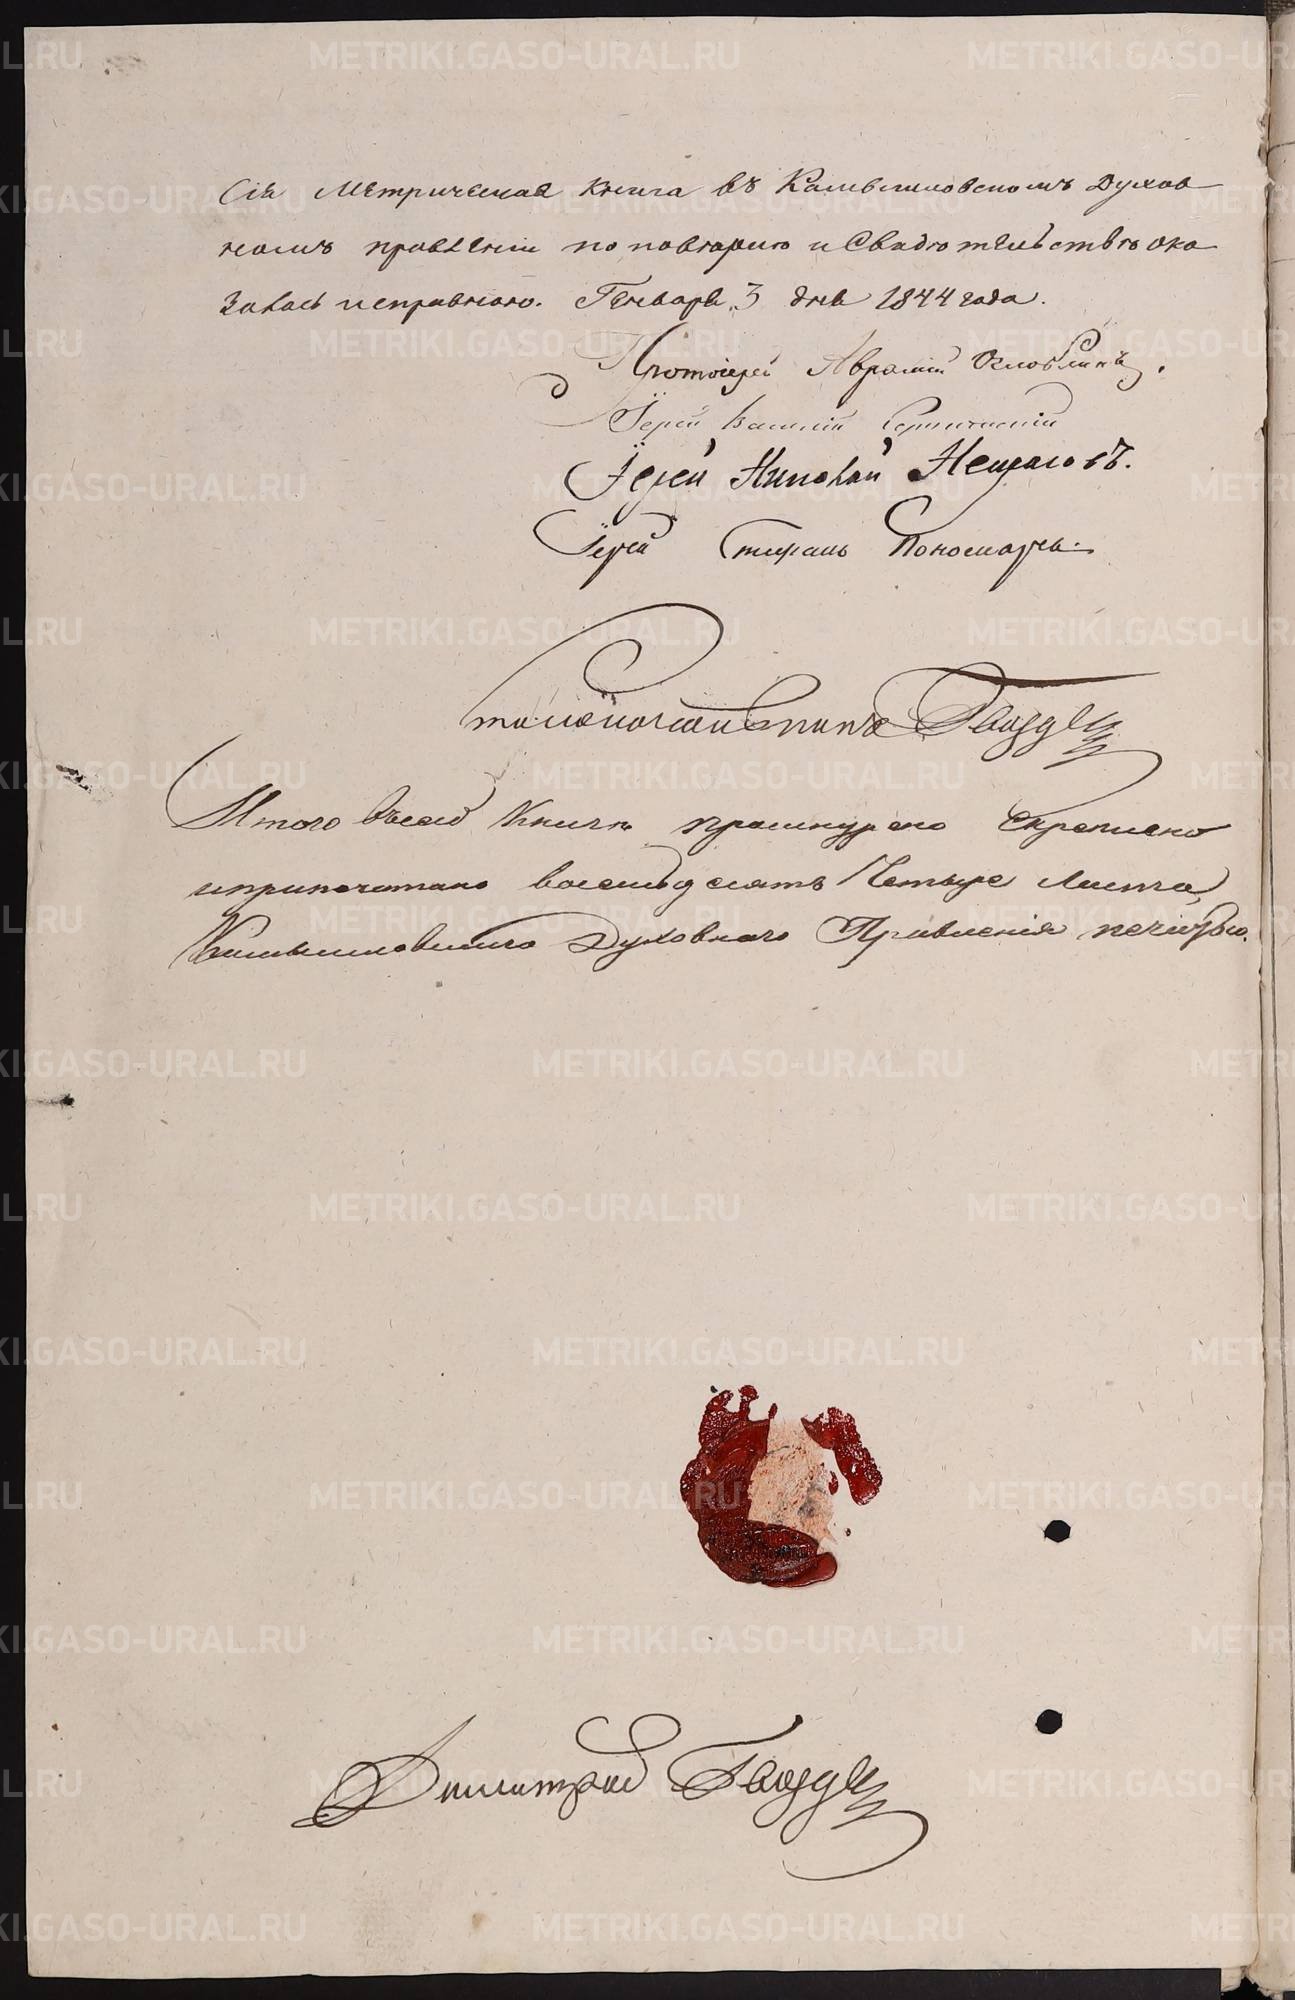 Сія Метрическая книга въ Камышловскомъ Духов
номъ правленіи по поверкѣ и Свидѣтельствѣ ока
залась исправною. Генваря 3 дня 1844 года.
Протоіерей Аврамій Оглоблинъ.
Іерей Василій
Іерей Николай
Іерей Стефанъ Пономаревъ.
Гвоздец
Итого Въсей Книгѣ прошнурено скреплено
иприпечатано восемьдесятъ Четыре листа,
Камышловскаго Духовнаго Правленія печатью.
Димитрій Гвоздец
METRIKI.GASO-URAL.RU